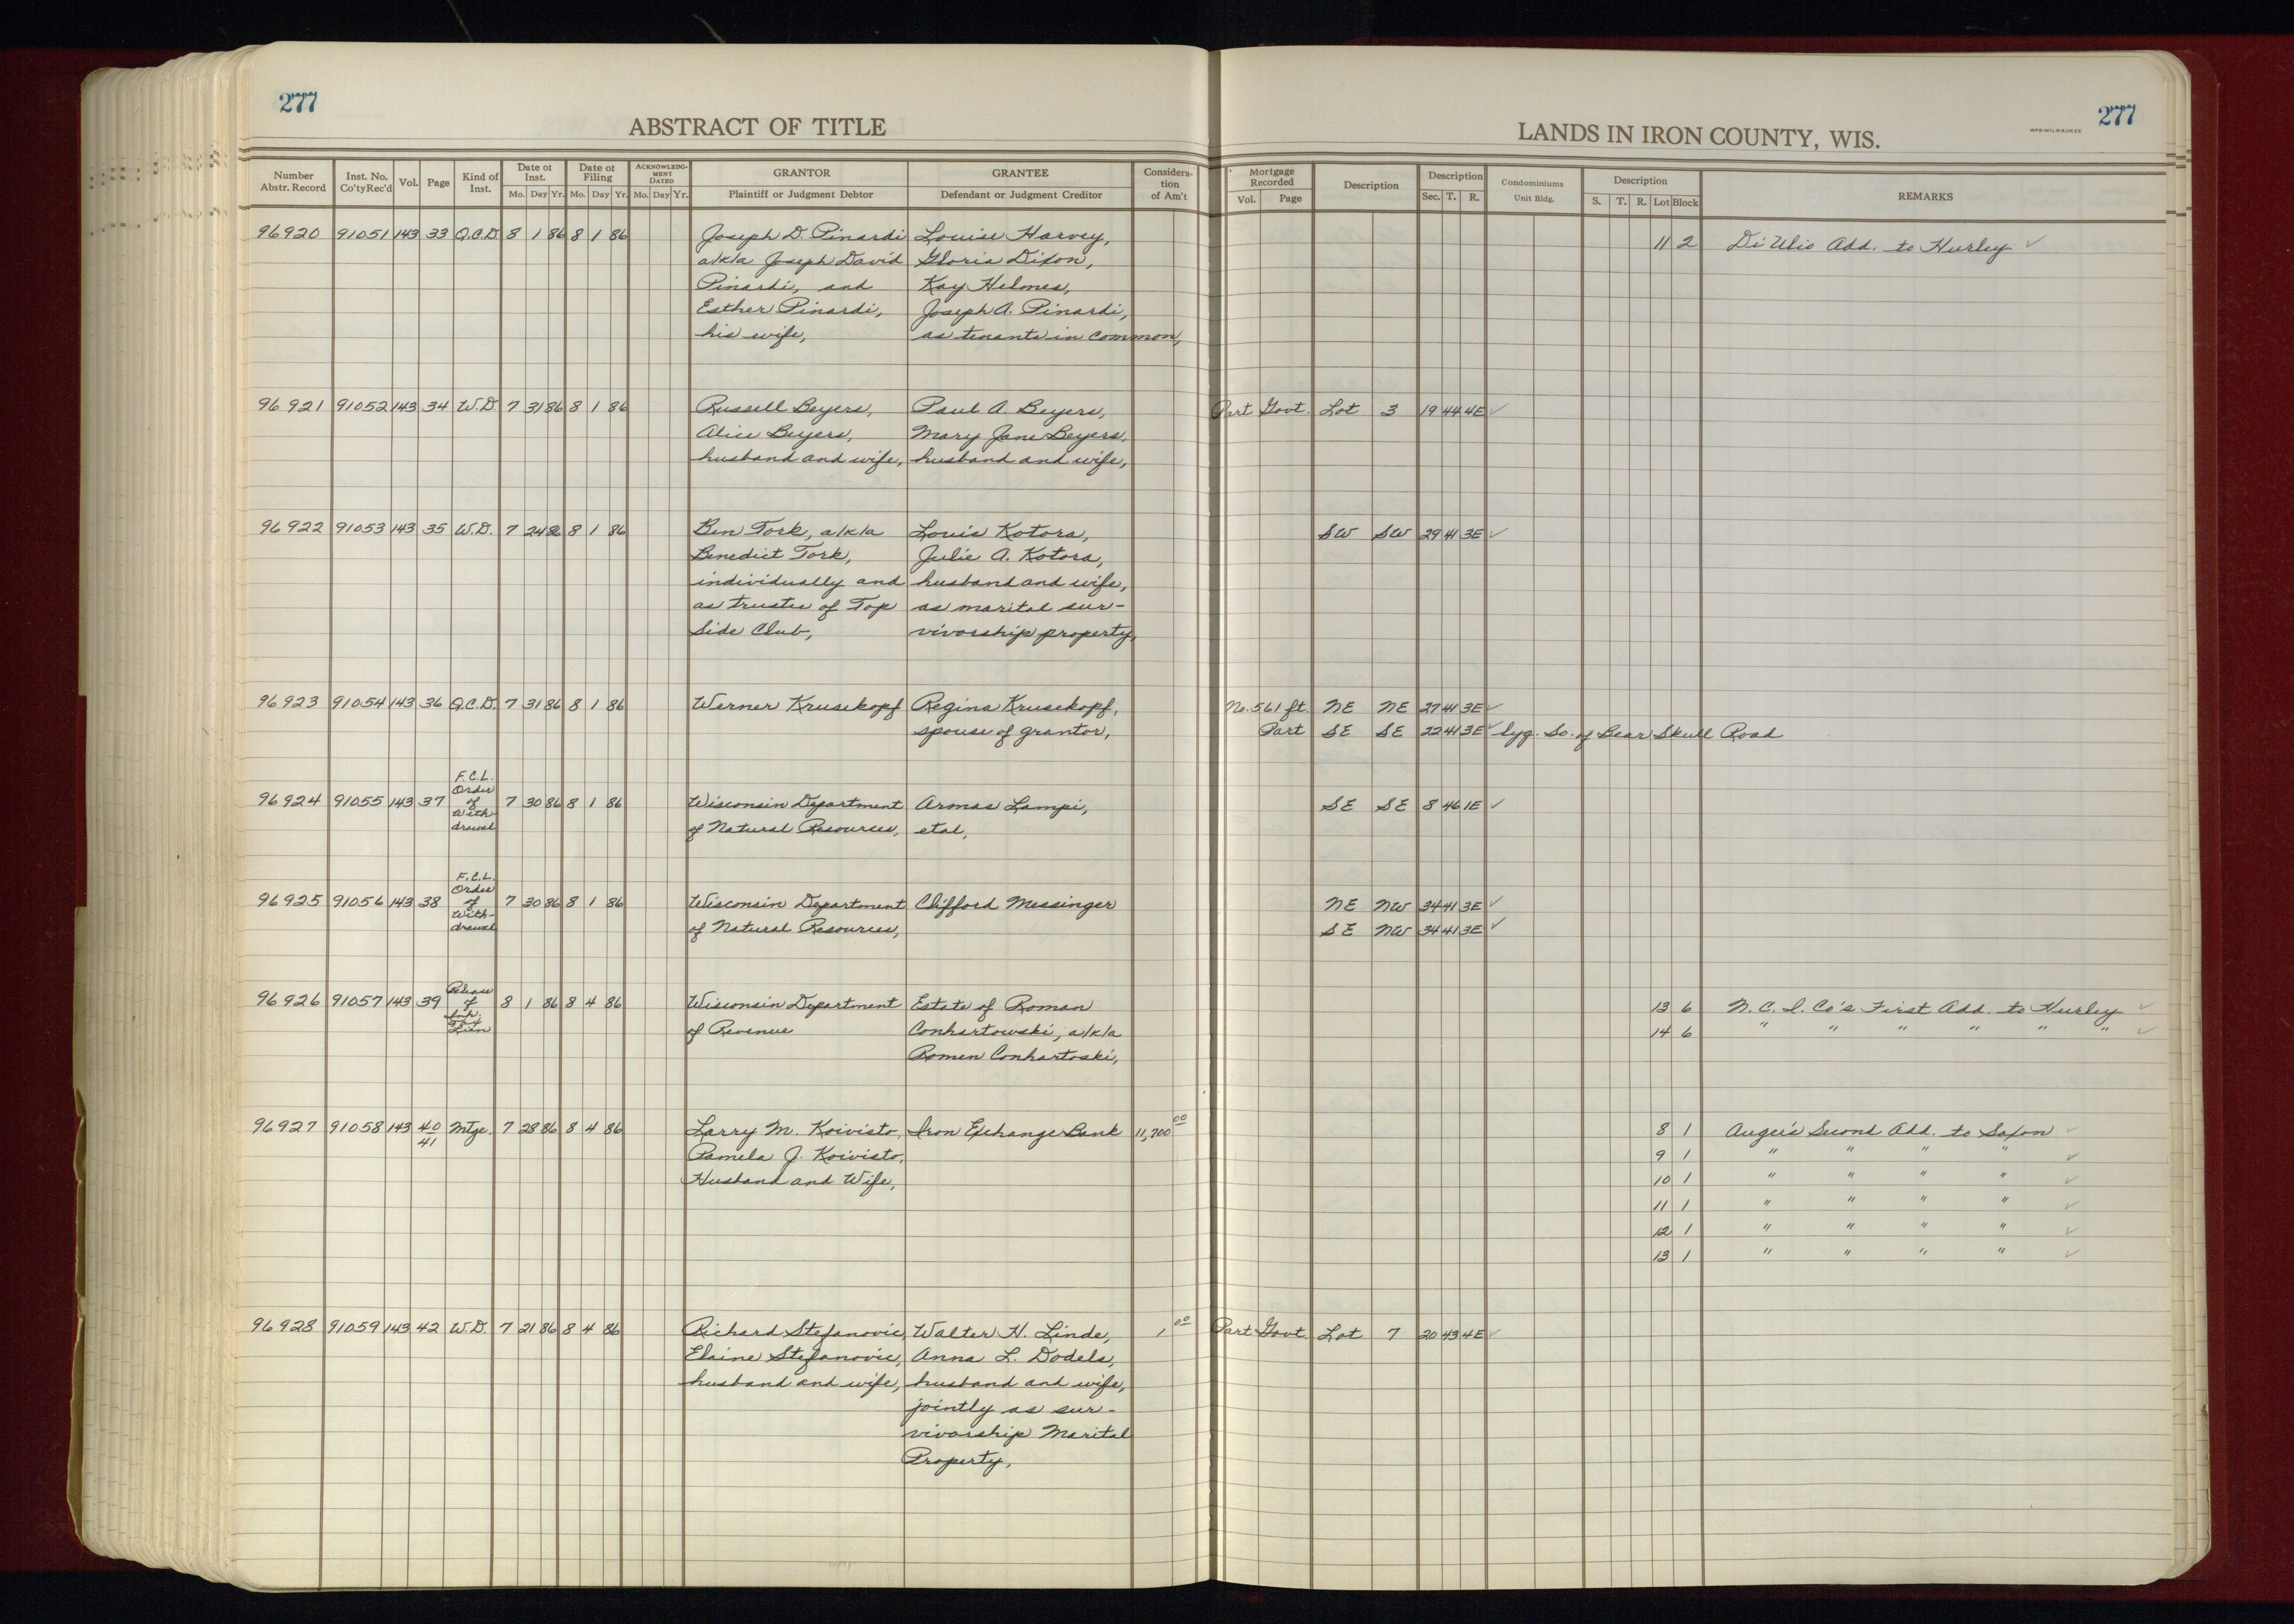 277
277
ABSTRACT OF TITLE
LANDS IN IRON COUNTY, WIS.
WPB-MILWAUKEE
Number Abstr. Record | Inst. No. Co'ty Rec'd | Vol. | Page | Kind of Inst. | Date of Inst. Mo. Day Yr. | Date of Filing Mo. Day Yr. | ACKNOWLEDGMENT DATED Mo. Day Yr. | GRANTOR Plaintiff or Judgment Debtor | GRANTEE Defendant or Judgment Creditor | Consideration of Am't | Mortgage Recorded Vol. Page | Description | Description Sec. T. R. | Condominiums Unit Bldg. | Description S. T. R. Lot Block | REMARKS
96920 91051 143 33 Q.C.D. 8 1 86 8 1 86 Joseph D. Pinardi Louise Harvey, 11 2 Di Ulio Add. to Hurley ✓
a/k/a Joseph David Gloria Dixon,
Pinardi, and Kay Helmes,
Esther Pinardi, Joseph A. Pinardi,
his wife, as tenants in common,
96921 91052 143 34 W.D. 7 31 86 8 1 86 Russell Beyers, Paul A. Beyers, Part Govt. Lot 3 19 44 4E ✓
Alice Beyers, Mary Jane Beyers,
husband and wife, husband and wife,
96922 91053 143 35 W.D. 7 24 86 8 1 86 Ben Tork, a/k/a Louis Kotora, SW SW 29 41 3E ✓
Benedict Tork, Julie A. Kotora,
individually and husband and wife,
as trustee of Top as marital sur-
Side Club, vivorship property,
96923 91054 143 36 Q.C.D. 7 31 86 8 1 86 Werner Krusekopf Regina Krusekopf, No. 561 ft. NE NE 27 41 3E ✓
spouse of grantor, Part SE SE 22 41 3E ✓ lyg. So. of Bear Skull Road
96924 91055 143 37 F.C.L. Order of With-drawal 7 30 86 8 1 86 Wisconsin Department Armas Lampi, SE SE 8 46 1E ✓
of Natural Resources, etal,
96925 91056 143 38 F.C.L. Order of With-drawal 7 30 86 8 1 86 Wisconsin Department Clifford Messinger NE NW 34 41 3E ✓
of Natural Resources, SE NW 34 41 3E ✓
96926 91057 143 39 Release of Inh. Tax Lien 8 1 86 8 4 86 Wisconsin Department Estate of Roman 13 6 N.C.I. Co's First Add. to Hurley ✓
of Revenue Conhartowski, a/k/a 14 6 " " " " " " ✓
Romen Conhartoski,
96927 91058 143 40 41 Mtge. 7 28 86 8 4 86 Larry M. Koivisto, Iron Exchange Bank 11,700 00 8 1 Auger's Second Add. to Saxon ✓
Pamela J. Koivisto, 9 1 " " " " ✓
Husband and Wife, 10 1 " " " " ✓
11 1 " " " " ✓
12 1 " " " " ✓
13 1 " " " " ✓
96928 91059 143 42 W.D. 7 21 86 8 4 86 Richard Stefanovic, Walter H. Linde, 1 00 Part Govt. Lot 7 20 43 4E ✓
Elaine Stefanovic, Anna L. Dodele,
husband and wife, husband and wife,
jointly as sur-
vivorship Marital
Property,